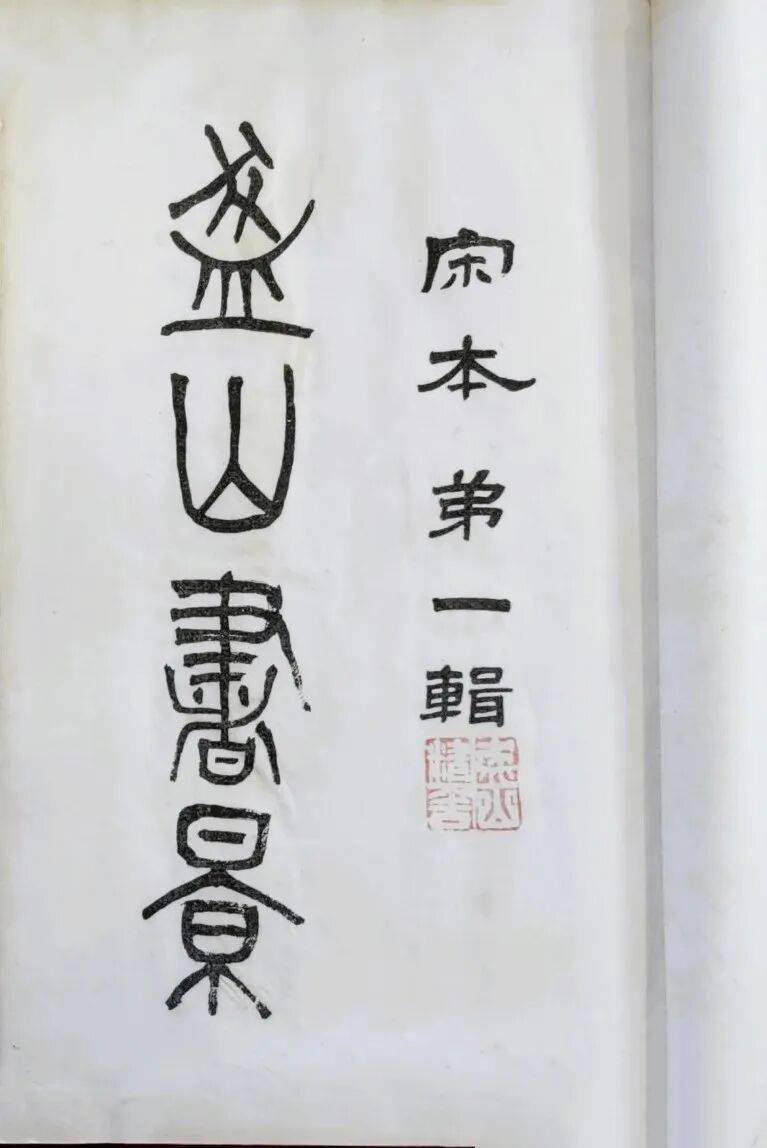 宋本弟一輯
盋山書景